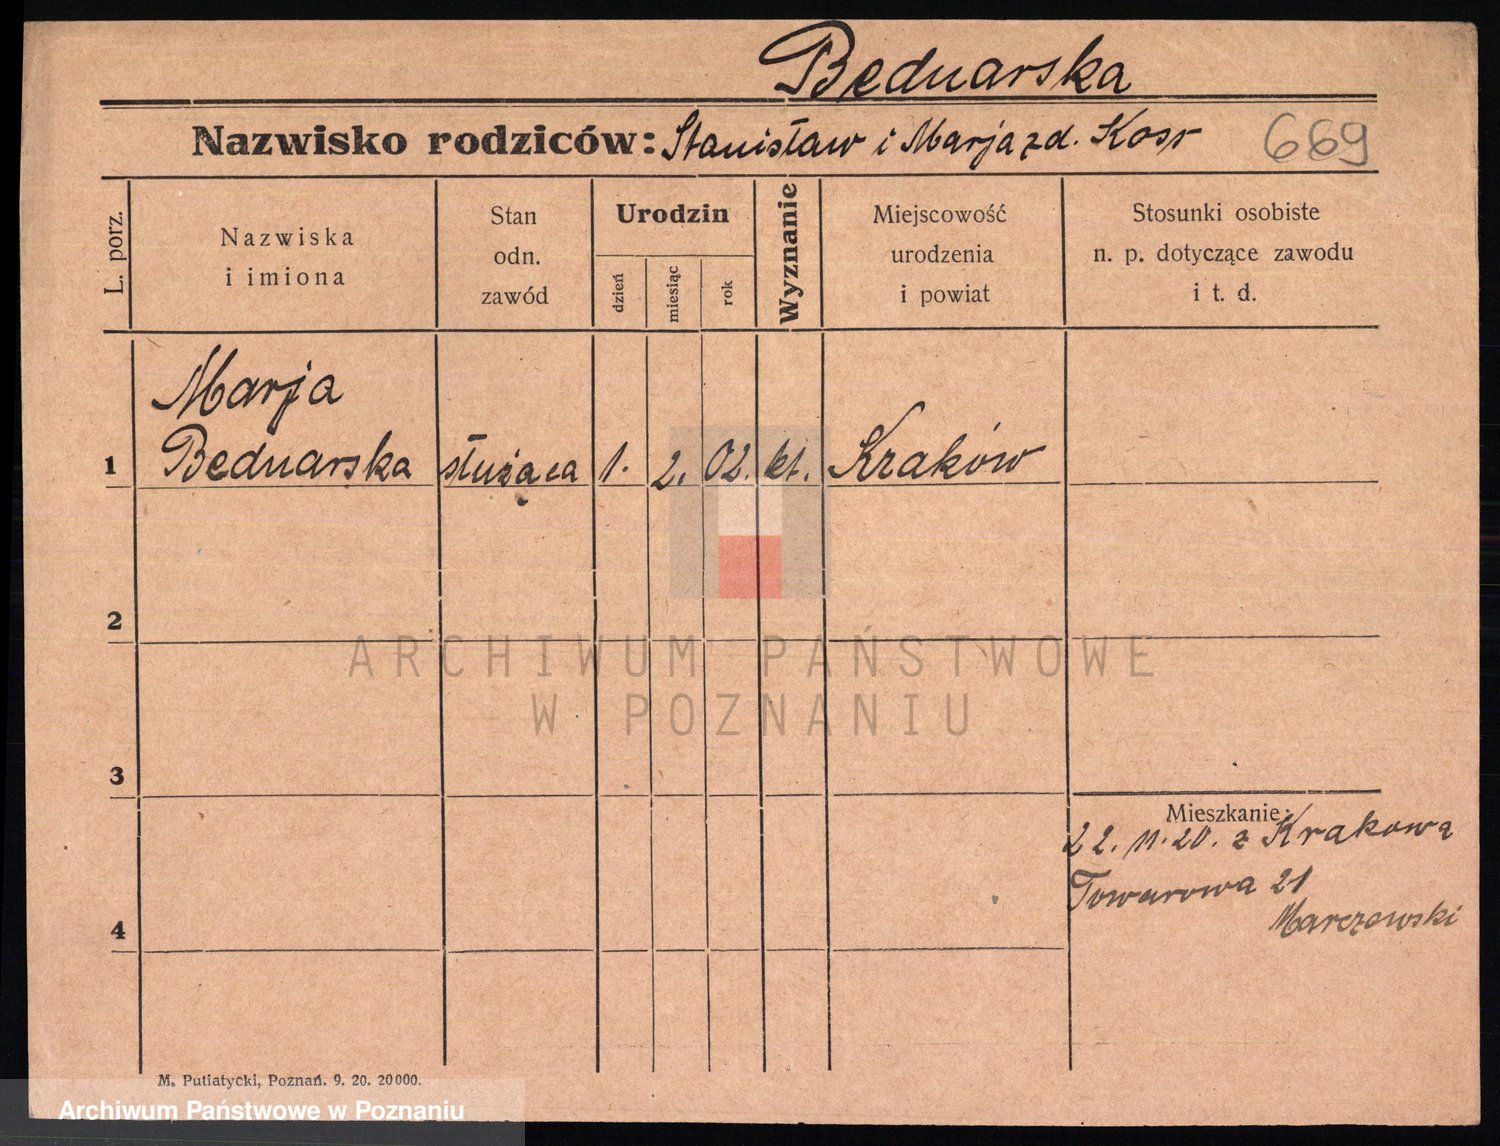 Bednarska
Nazwisko rodziców: Stanisław i Marja zd. Kosr 669
L. porz.
Nazwiska
i imiona
Stan
odn.
zawód
Urodzin
dzień
miesiąc
rok
Wyznanie
Miejscowość
urodzenia
i powiat
Stosunki osobiste
n. p. dotyczące zawodu
i t. d.
Marja
1 Bednarska służąca 1. 2. 02. kt. Kraków
2
ARCHIWUM PAŃSTWOWE
W POZNANIU
3
Mieszkanie:
22. 11. 20. z Krakowa
Towarowa 21
Marczewski
4
M. Putiatycki, Poznań. 9. 20. 20000.
Archiwum Państwowe w Poznaniu